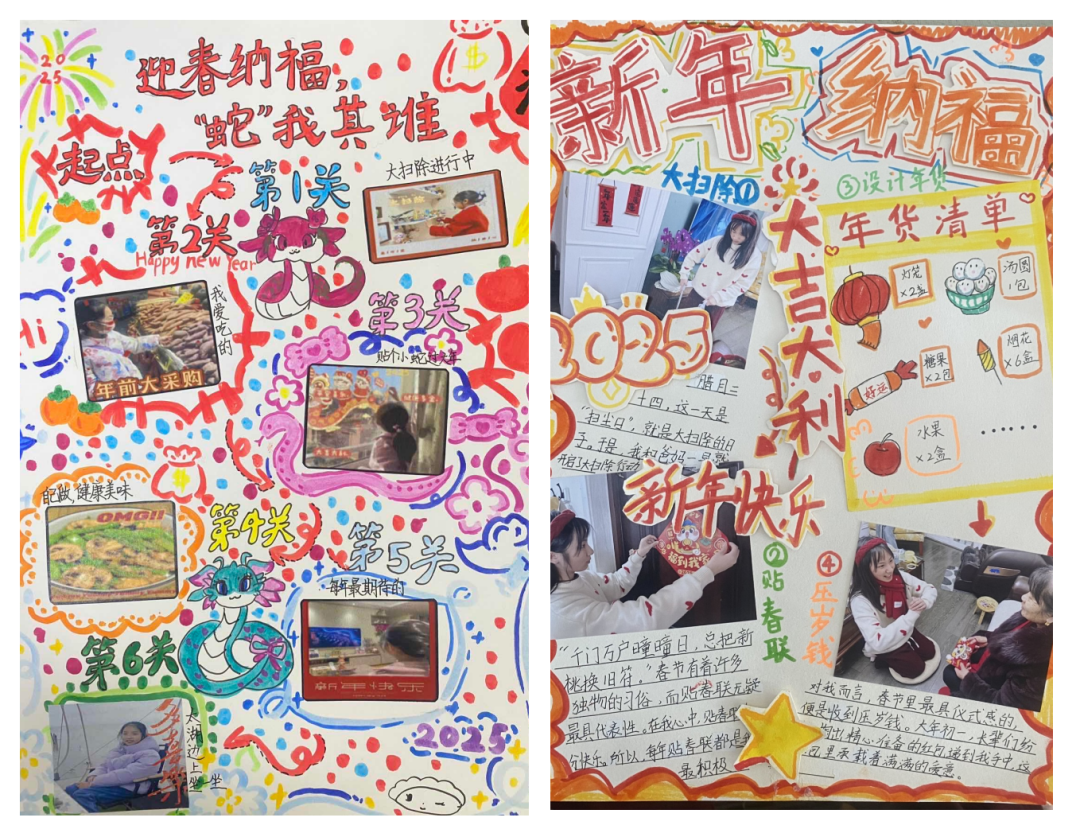 2025
迎春纳福,
"蛇"我其谁
起点
第1关
大扫除进行中
第2关
Happy new Year
我爱吃的
年前大采购
第3关
贴个小蛇过大年
Hi
自己做,健康美味
OMG!!
第4关
第5关
每年最期待的
新年快乐
第6关
太湖边上坐坐
2025
新年纳福
大扫除①
2025
腊月二
十四,这一天是
"扫尘日",就是大扫除的日
子。于是,我和爸妈一早就
开启了大扫除行动
大吉大利
新年快乐
③设计年货
年货清单
灯笼
×2盒
汤圆
1包
糖果
×2包
好运
烟花
×6盒
水果
×2盒
......
②贴春联
福到我家
"千门万户曈曈日,总把新
桃换旧符。"春节有着许多
独物的习俗,而贴春联无疑
最具代表性。在我心中,贴春联
快乐。所以,每年贴春联都是我
最积极
④压岁钱
对我而言,春节里最具仪式感的,
便是收到压岁钱。大年初一,长辈们纷
纷拿出精心准备的红包递到我手中,这
里承载着满满的爱意。